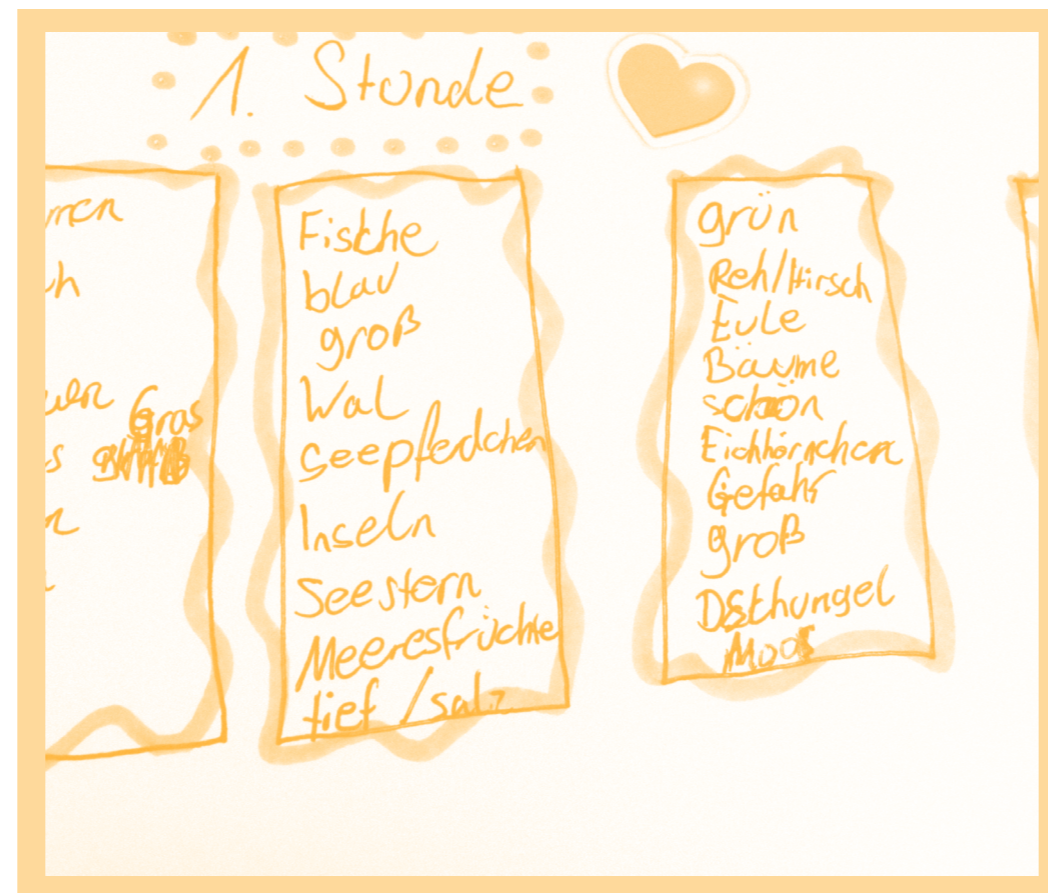 1. Stunde
Gras
Fische
blau
groß
Wal
Seepferdchen
Inseln
Seestern
Meeresfrüchte
tief / salz
grün
Reh/Hirsch
Eule
Bäume
schön
Eichhörnchen
Gefahr
groß
Dschungel
Moos